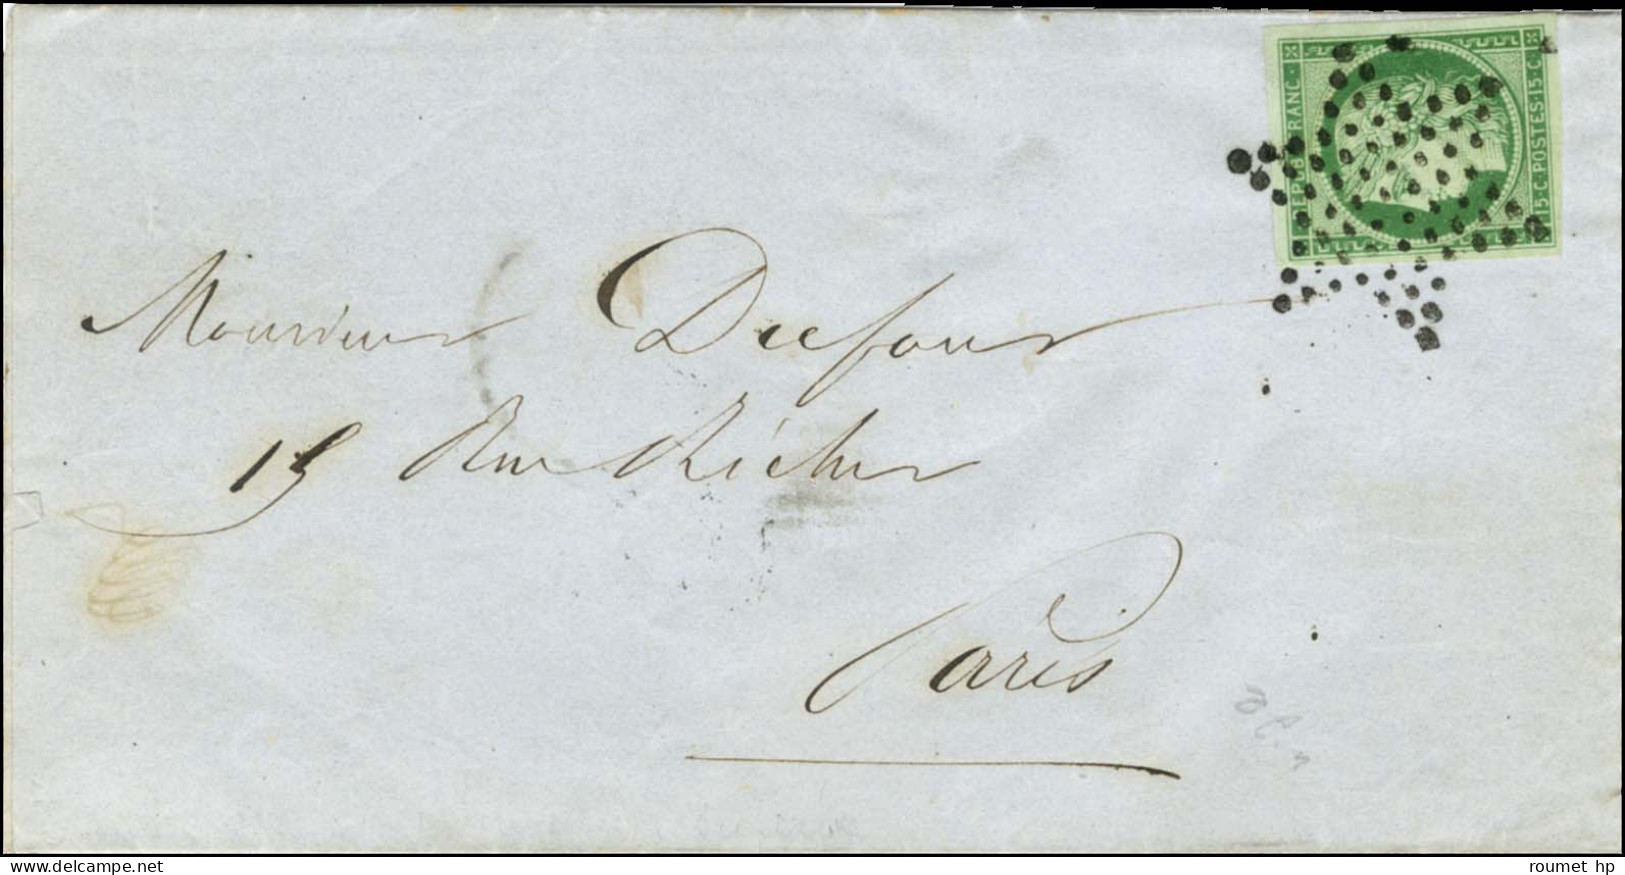 REPUB. FRANC.
15 C. POSTES 15 C.
Monsieur Dufour
19 Rue Richer
Paris
www.delcampe.net
roumet hp